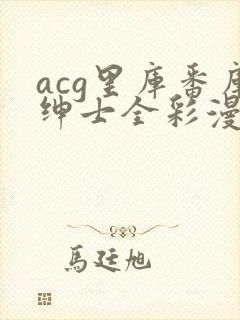 acg里库番库
绅士全彩漫
馬廷旭